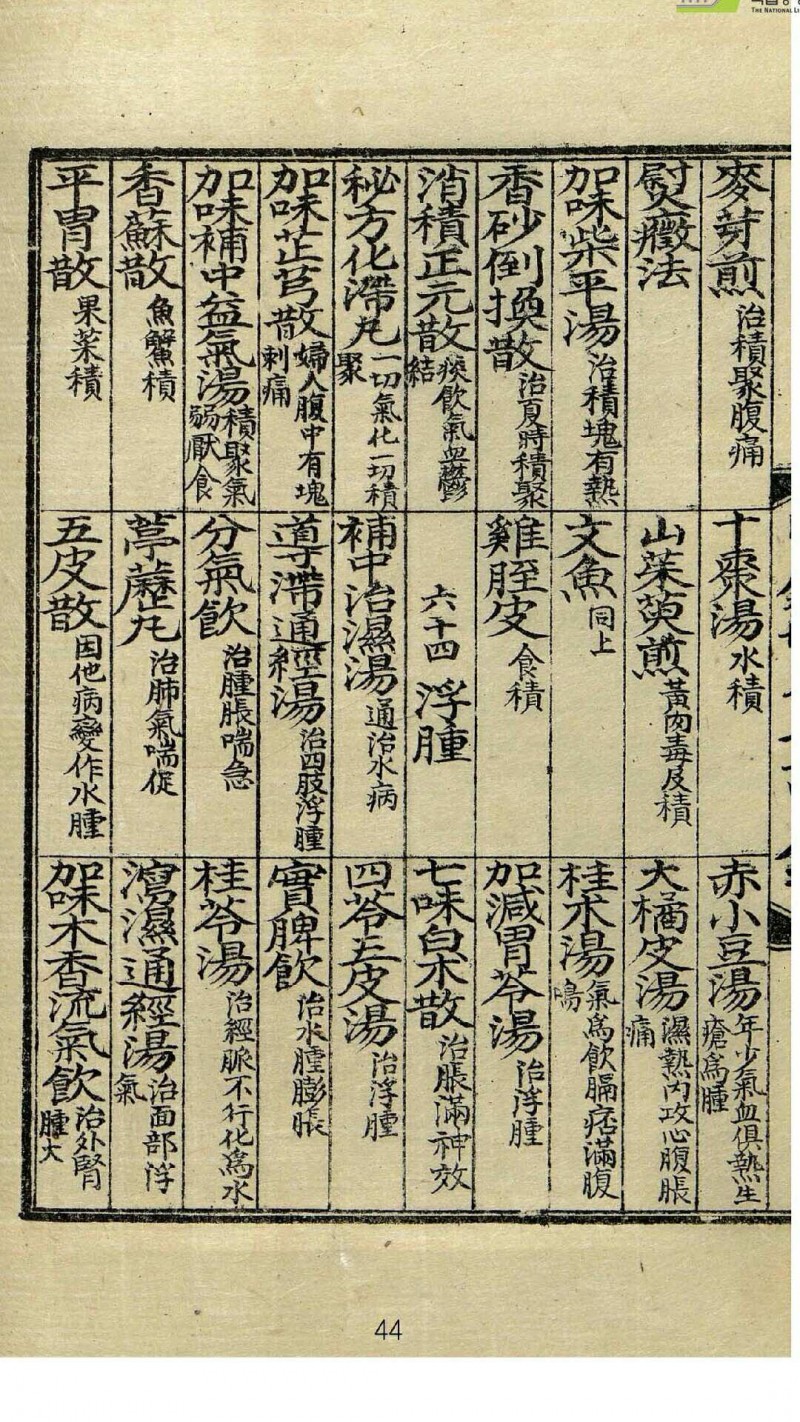 THE NATIONAL LI
麥芽煎 治積聚腹痛
熨癥法
加味柴平湯 治積塊有熱
香砂倒換散 治夏時積聚
消積正元散 痰飮氣血鬱結
秘方化滯丸 一切氣化一切積聚
加味芷芎散 婦人腹中有塊刺痛
加味補中益氣湯 積聚氣弱厭食
香蘇散 魚蟹積
平胃散 果菜積
十棗湯 水積
山茱萸煎 黃肉毒及積
文魚 同上
雞胵皮 食積
六十四 浮腫
補中治濕湯 通治水病
導滯通經湯 治四肢浮腫
分氣飮 治腫脹喘急
葶藶丸 治肺氣喘促
五皮散 因他病變作水腫
赤小豆湯 年少氣血俱熱生瘡爲腫
大橘皮湯 濕熱內攻心腹脹痛
桂朮湯 氣爲飮膈痞滿腹鳴
加減胃苓湯 治浮腫
七味白朮散 治脹滿神效
四苓五皮湯 治浮腫
實脾飮 治水腫膨脹
桂苓湯 治經脈不行化爲水
瀉濕通經湯 治面部浮氣
加味木香流氣飮 治外腎腫大
44